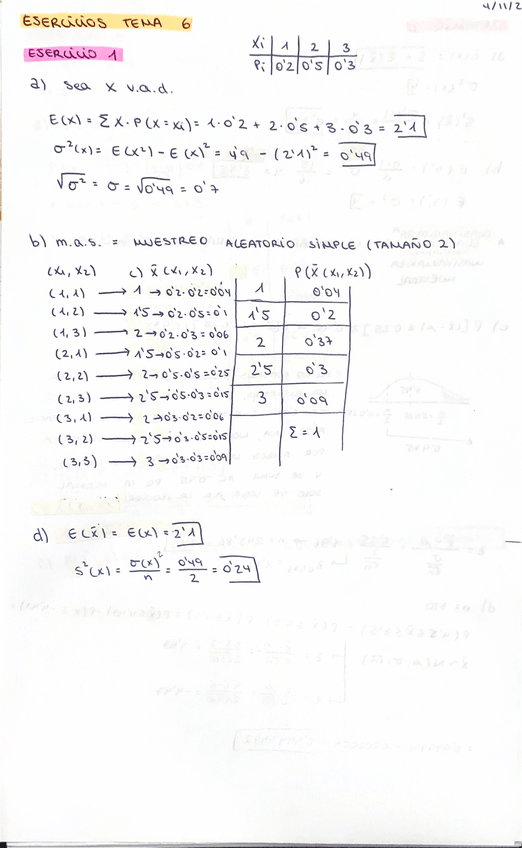 4/11/2
ESERCICIOS TEMA 6
ESERCICIO 1
Xi | 1 | 2 | 3
Pi | 0'2 | 0'5 | 0'3
a) sea x v.a.d.
E(x) = Σ x · P(x = xi) = 1 · 0'2 + 2 · 0'5 + 3 · 0'3 = 2'1
σ²(x) = E(x²) - E(x)² = 4'9 - (2'1)² = 0'49
√σ² = σ = √0'49 = 0'7
b) m.a.s. = MUESTREO ALEATORIO SIMPLE (TAMAÑO 2)
(x₁, x₂) c) x̄ (x₁, x₂) P(x̄ (x₁, x₂))
(1,1) → 1 → 0'2·0'2 = 0'04 | 1 | 0'04
(1,2) → 1'5 → 0'2·0'5 = 0'1 | 1'5 | 0'2
(1,3) → 2 → 0'2·0'3 = 0'06 | 2 | 0'37
(2,1) → 1'5 → 0'5·0'2 = 0'1
(2,2) → 2 → 0'5·0'5 = 0'25 | 2'5 | 0'3
(2,3) → 2'5 → 0'5·0'3 = 0'15 | 3 | 0'09
(3,1) → 2 → 0'3·0'2 = 0'06
(3,2) → 2'5 → 0'3·0'5 = 0'15 | Σ = 1
(3,3) → 3 → 0'3·0'3 = 0'09
d) E(x̄) = E(x) = 2'1
S²(x) = σ(x)²/n = 0'49/2 = 0'24